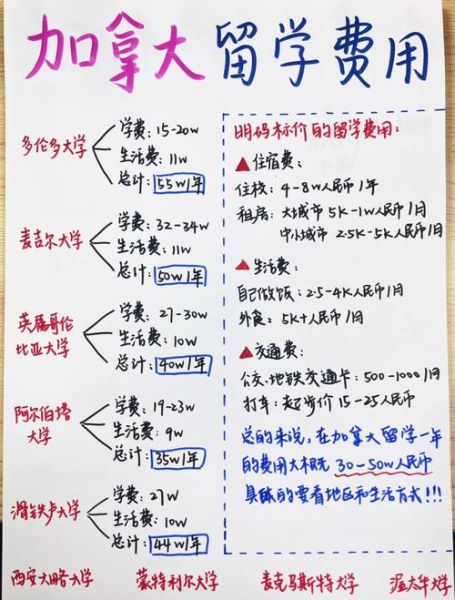 加拿大留学费用
多伦多大学
学费: 15-20w
生活费: 11w
总计: 55w/年
麦吉尔大学
学费: 32-34w
生活费: 11w
总计: 50w/年
英属哥伦
比亚大学
学费: 27-30w
生活费: 10w
总计: 40w/年
阿尔伯塔
大学
学费: 19-23w
生活费: 9w
总计: 35w/年
滑铁卢大学
学费: 27w
生活费: 10w
总计: 44w/年
明码标价的留学费用:
▲住宿费:
住校: 4-8w人民币1年
租房: 大城市 5K-1w人民币/月
中小城市 2.5K-5K人民币/月
▲生活费:
自己做饭: 2.5-4K人民币/月
外食: 5K+人民币/月
▲交通费:
公交、地铁交通卡: 500-1000/月
打车: 起步价 15-25人民币
总的来说, 在加拿大留学一年
的费用大概 30-50w人民币
具体的要看地区和生活方式!!!
西安大略大学 蒙特利尔大学 麦克马斯特大学 渥太华大学